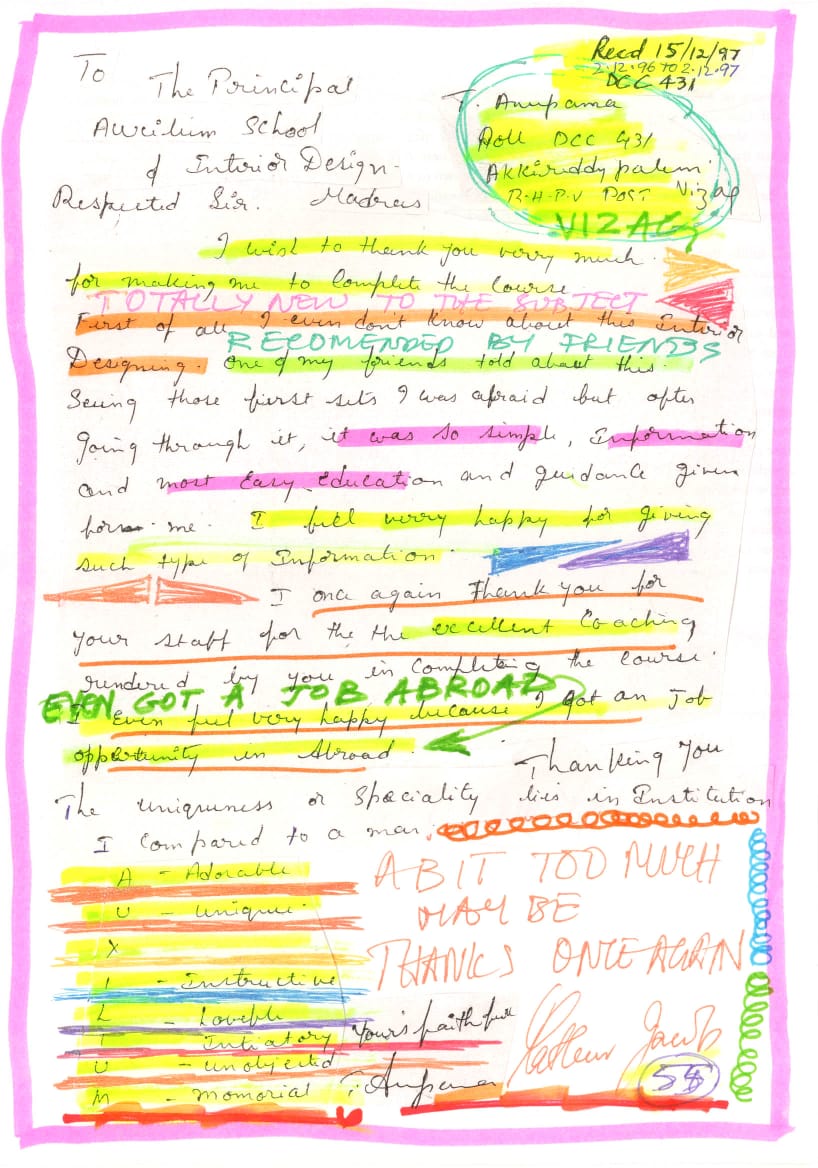 Recd 15/12/97
2.12.96 TO 2.12.97
DCC 431
To
The Principal
Auxilium School
of Interior Design-
Madras
T. Anupama
Roll DCC 431
Akkireddypalem
B.H.P.V POST Vizag
VIZAG
Respected Sir.
I wish to thank you verry much.
for making me to Complete the Course.
TOTALLY NEW TO THE SUBJECT
First of all I even dont know about this Interior
RECOMENDED BY FRIENDS
Designing. One of my friends told about this.
Seeing those first sets I was afraid but after
going through it, it was so simple, Information
and most Easy Education and guidance given
for me. I feel verry happy for giving
such type of Information.
I once again Thank you for
your staff for the the excellent Coaching
rendered by you in Completing the Course.
EVEN GOT A JOB ABROAD
I Even feel very happy because I got an Job
opportunity in Abroad.
Thanking You
The uniquness or Speciality lies in Institution
I compared to a man.
A - Adorable
U - unique
X
I - Instructive
L - Loveble
I - Intiatory
U - unobjected
M - Momorial
A BIT TOO MUCH
MAY BE
THANKS ONCE AGAIN
Your's faithfull
T. Anupama
Jacob